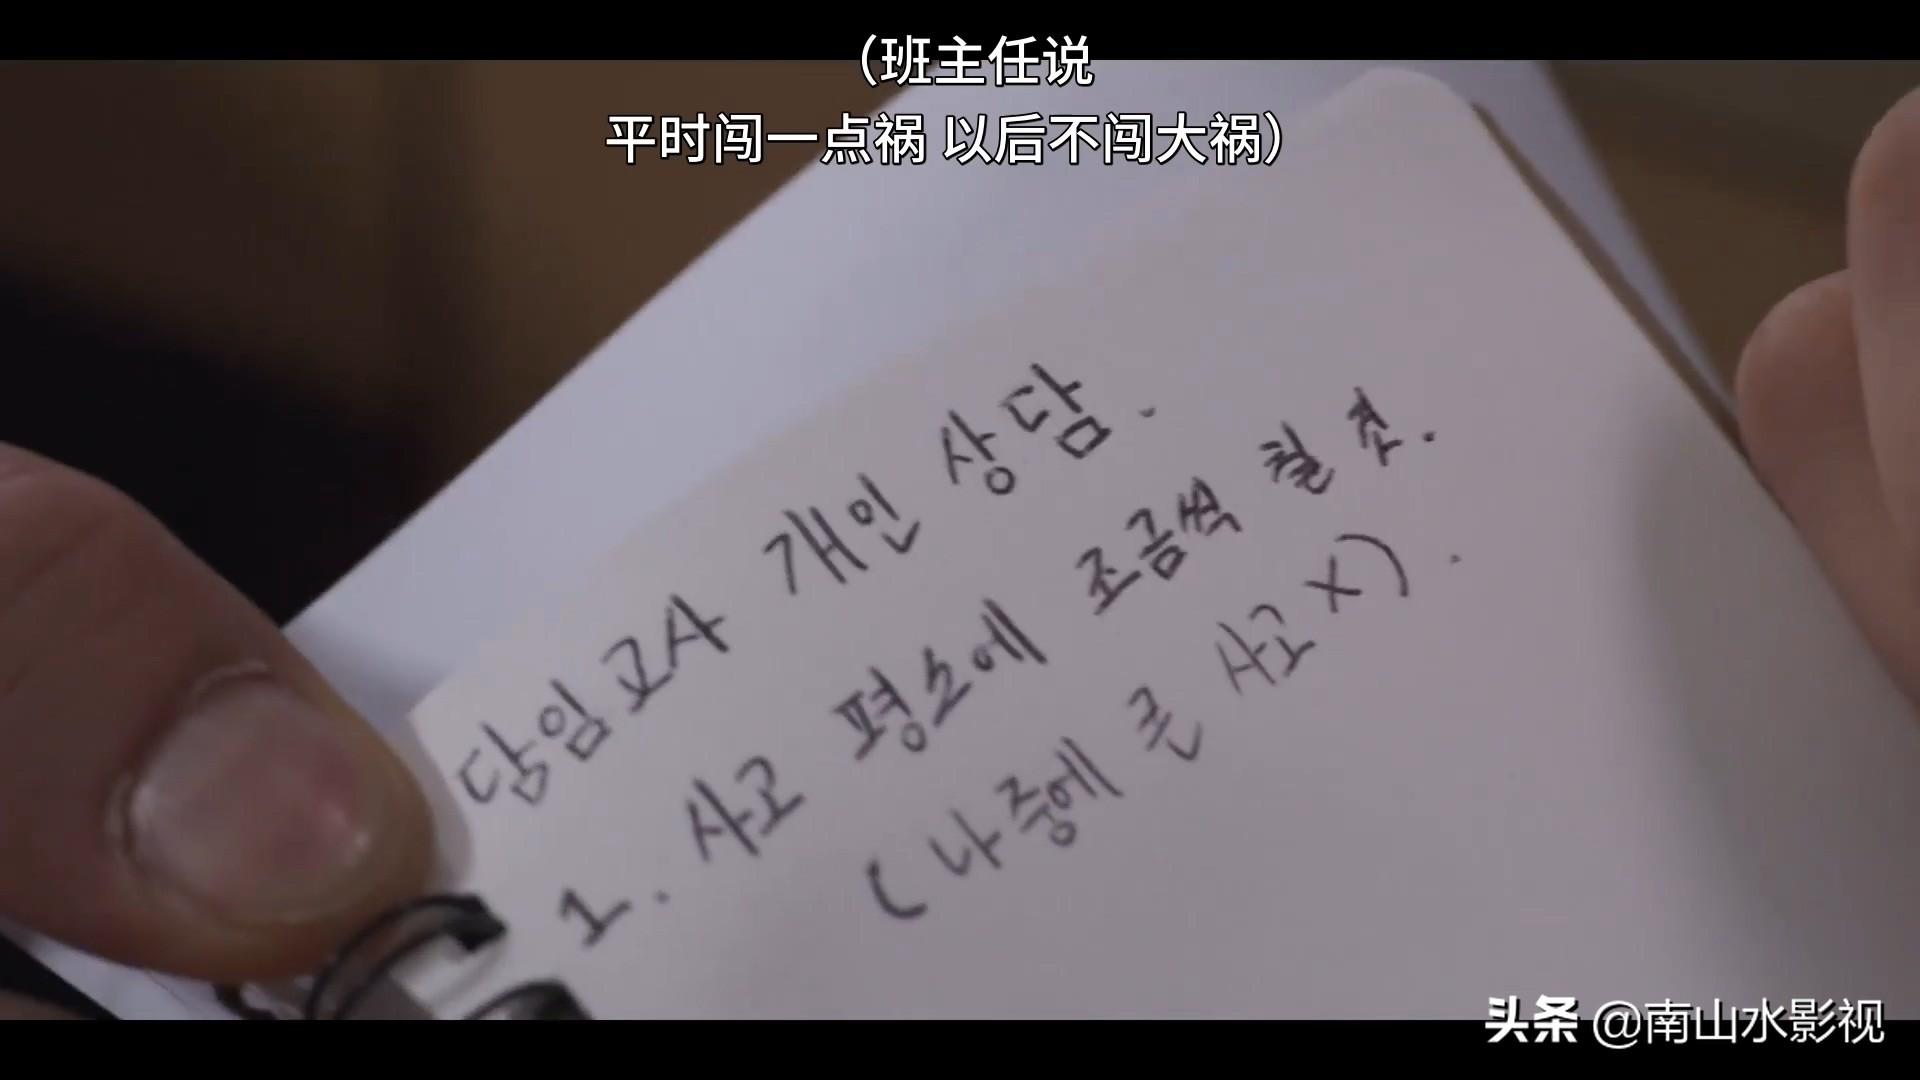 （班主任说
平时闯一点祸 以后不闯大祸）
담임교사 개인 상담.
1. 사고 평소에 조금씩 칠 것.
(나중에 큰 사고 X).
头条 @南山水影视